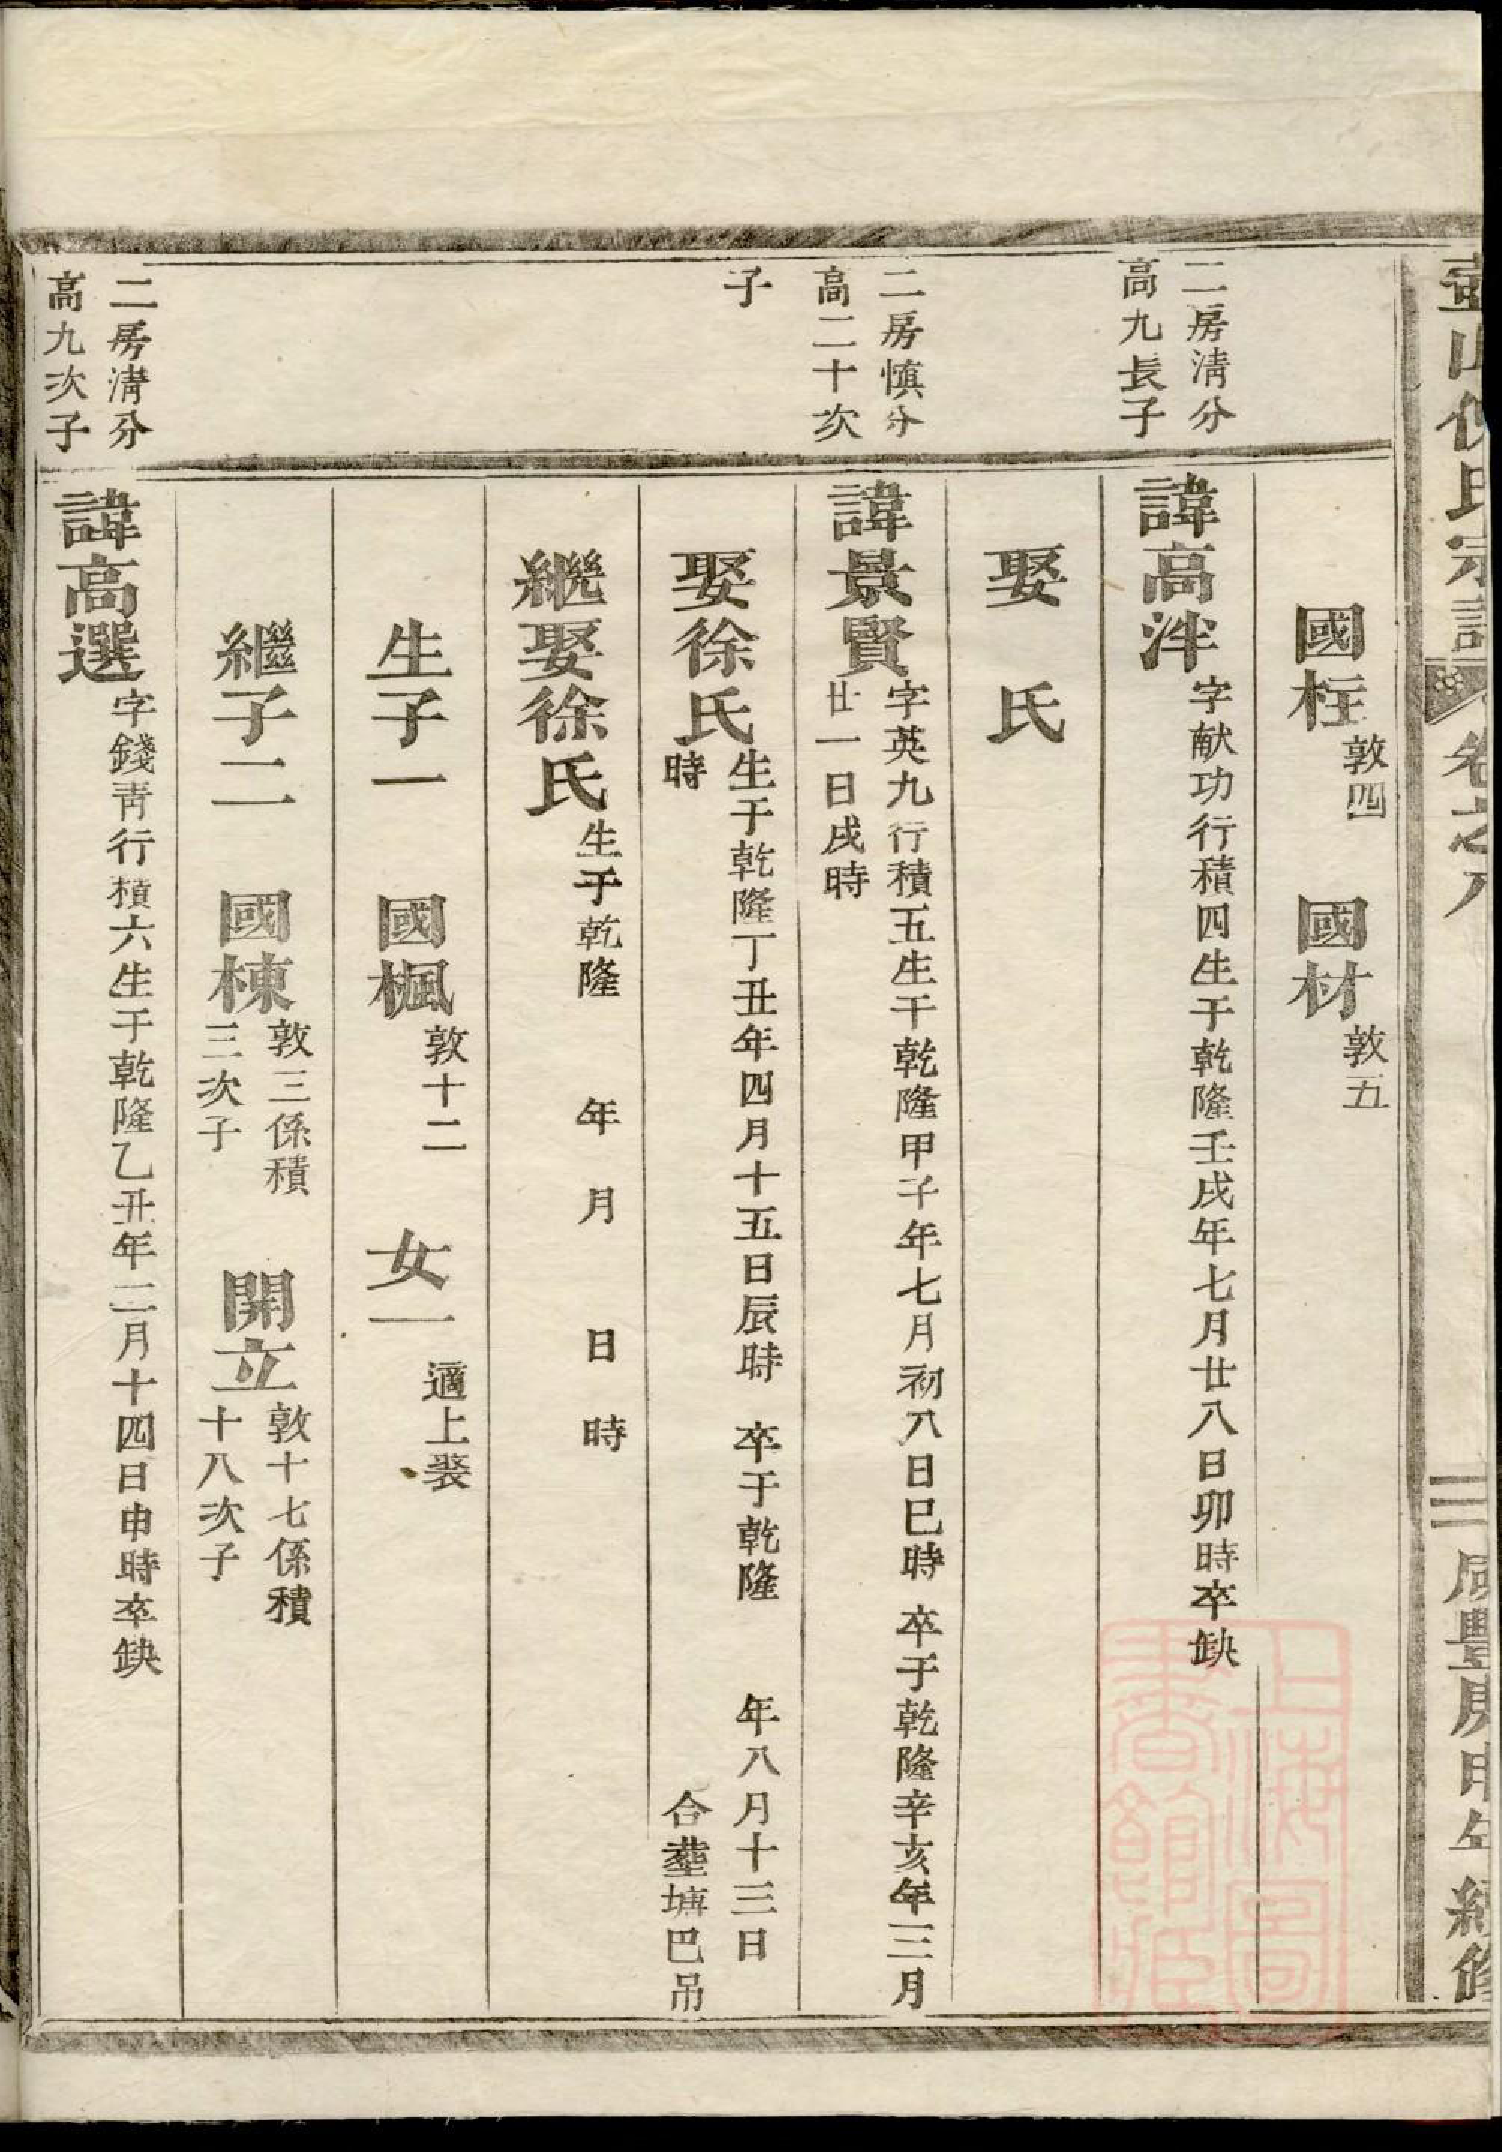 壺山倪氏宗譜 卷之八 三 咸豐庚申年續修
國柱 敦四 國材 敦五
二房清分
高九長子
諱高泮 字献功行積四生于乾隆壬戌年七月廿八日卯時卒缺
娶 氏
二房慎分
高二十次
子
諱景賢 字英九行積五生于乾隆甲子年七月初八日巳時 卒于乾隆辛亥年三月
廿一日戌時
娶徐氏 生于乾隆丁丑年四月十五日辰時 卒于乾隆 年八月十三日
時 合塟塘巴吊
繼娶徐氏 生于乾隆 年 月 日 時
生子一 國楓 敦十二 女一 適上裘
繼子二 國棟 敦三係積
三次子
開立 敦十七係積
十八次子
二房清分
高九次子
諱高選 字錢青行積六生于乾隆乙丑年二月十四日申時卒缺
上海圖書館藏